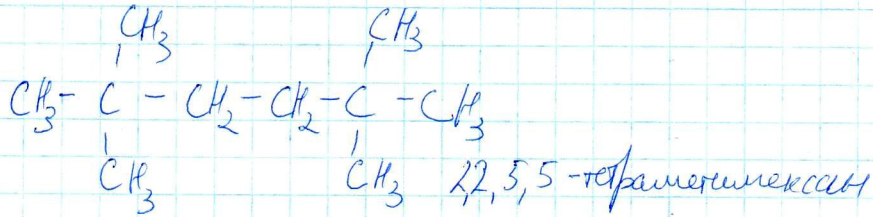 CH3 CH3
CH3 - C - CH2 - CH2 - C - CH3
CH3 CH3 2,2,5,5-тетраметилгексан